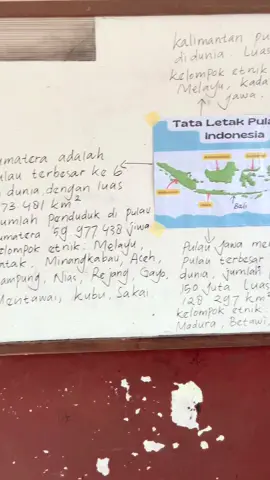 kalimantan pu
di dunia. Luas
kelompok etnik
Melayu, kada
jawa.
Tata Letak Pula
Indonesia
Bali
umatera adalah
ulau terbesar ke 6
dunia, dengan luas
73 481 km²
umlah penduduk di pulau
umatera 59 977 438 jiwa
elompok etnik. Melayu,
atak, Minangkabau, Aceh,
ampung, Nias, Rejang, Gayo,
Mentawai, kubu, Sakai
Pulau jawa me
pulau terbesar
dunia, jumlah
150 juta Luas
128 297 km
kelompok etnik
Madura, Betawi,